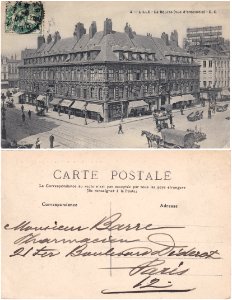 4 - LILLE - La Bourse (vue d'ensemble) - E. C.
CARTE POSTALE
La Correspondance au recto n'est pas acceptée par tous les pays étrangers
(Se renseigner à la Poste)
Correspondance
Adresse
Monsieur Barre
Pharmacien
21 ter Boulevard Diderot
Paris
12